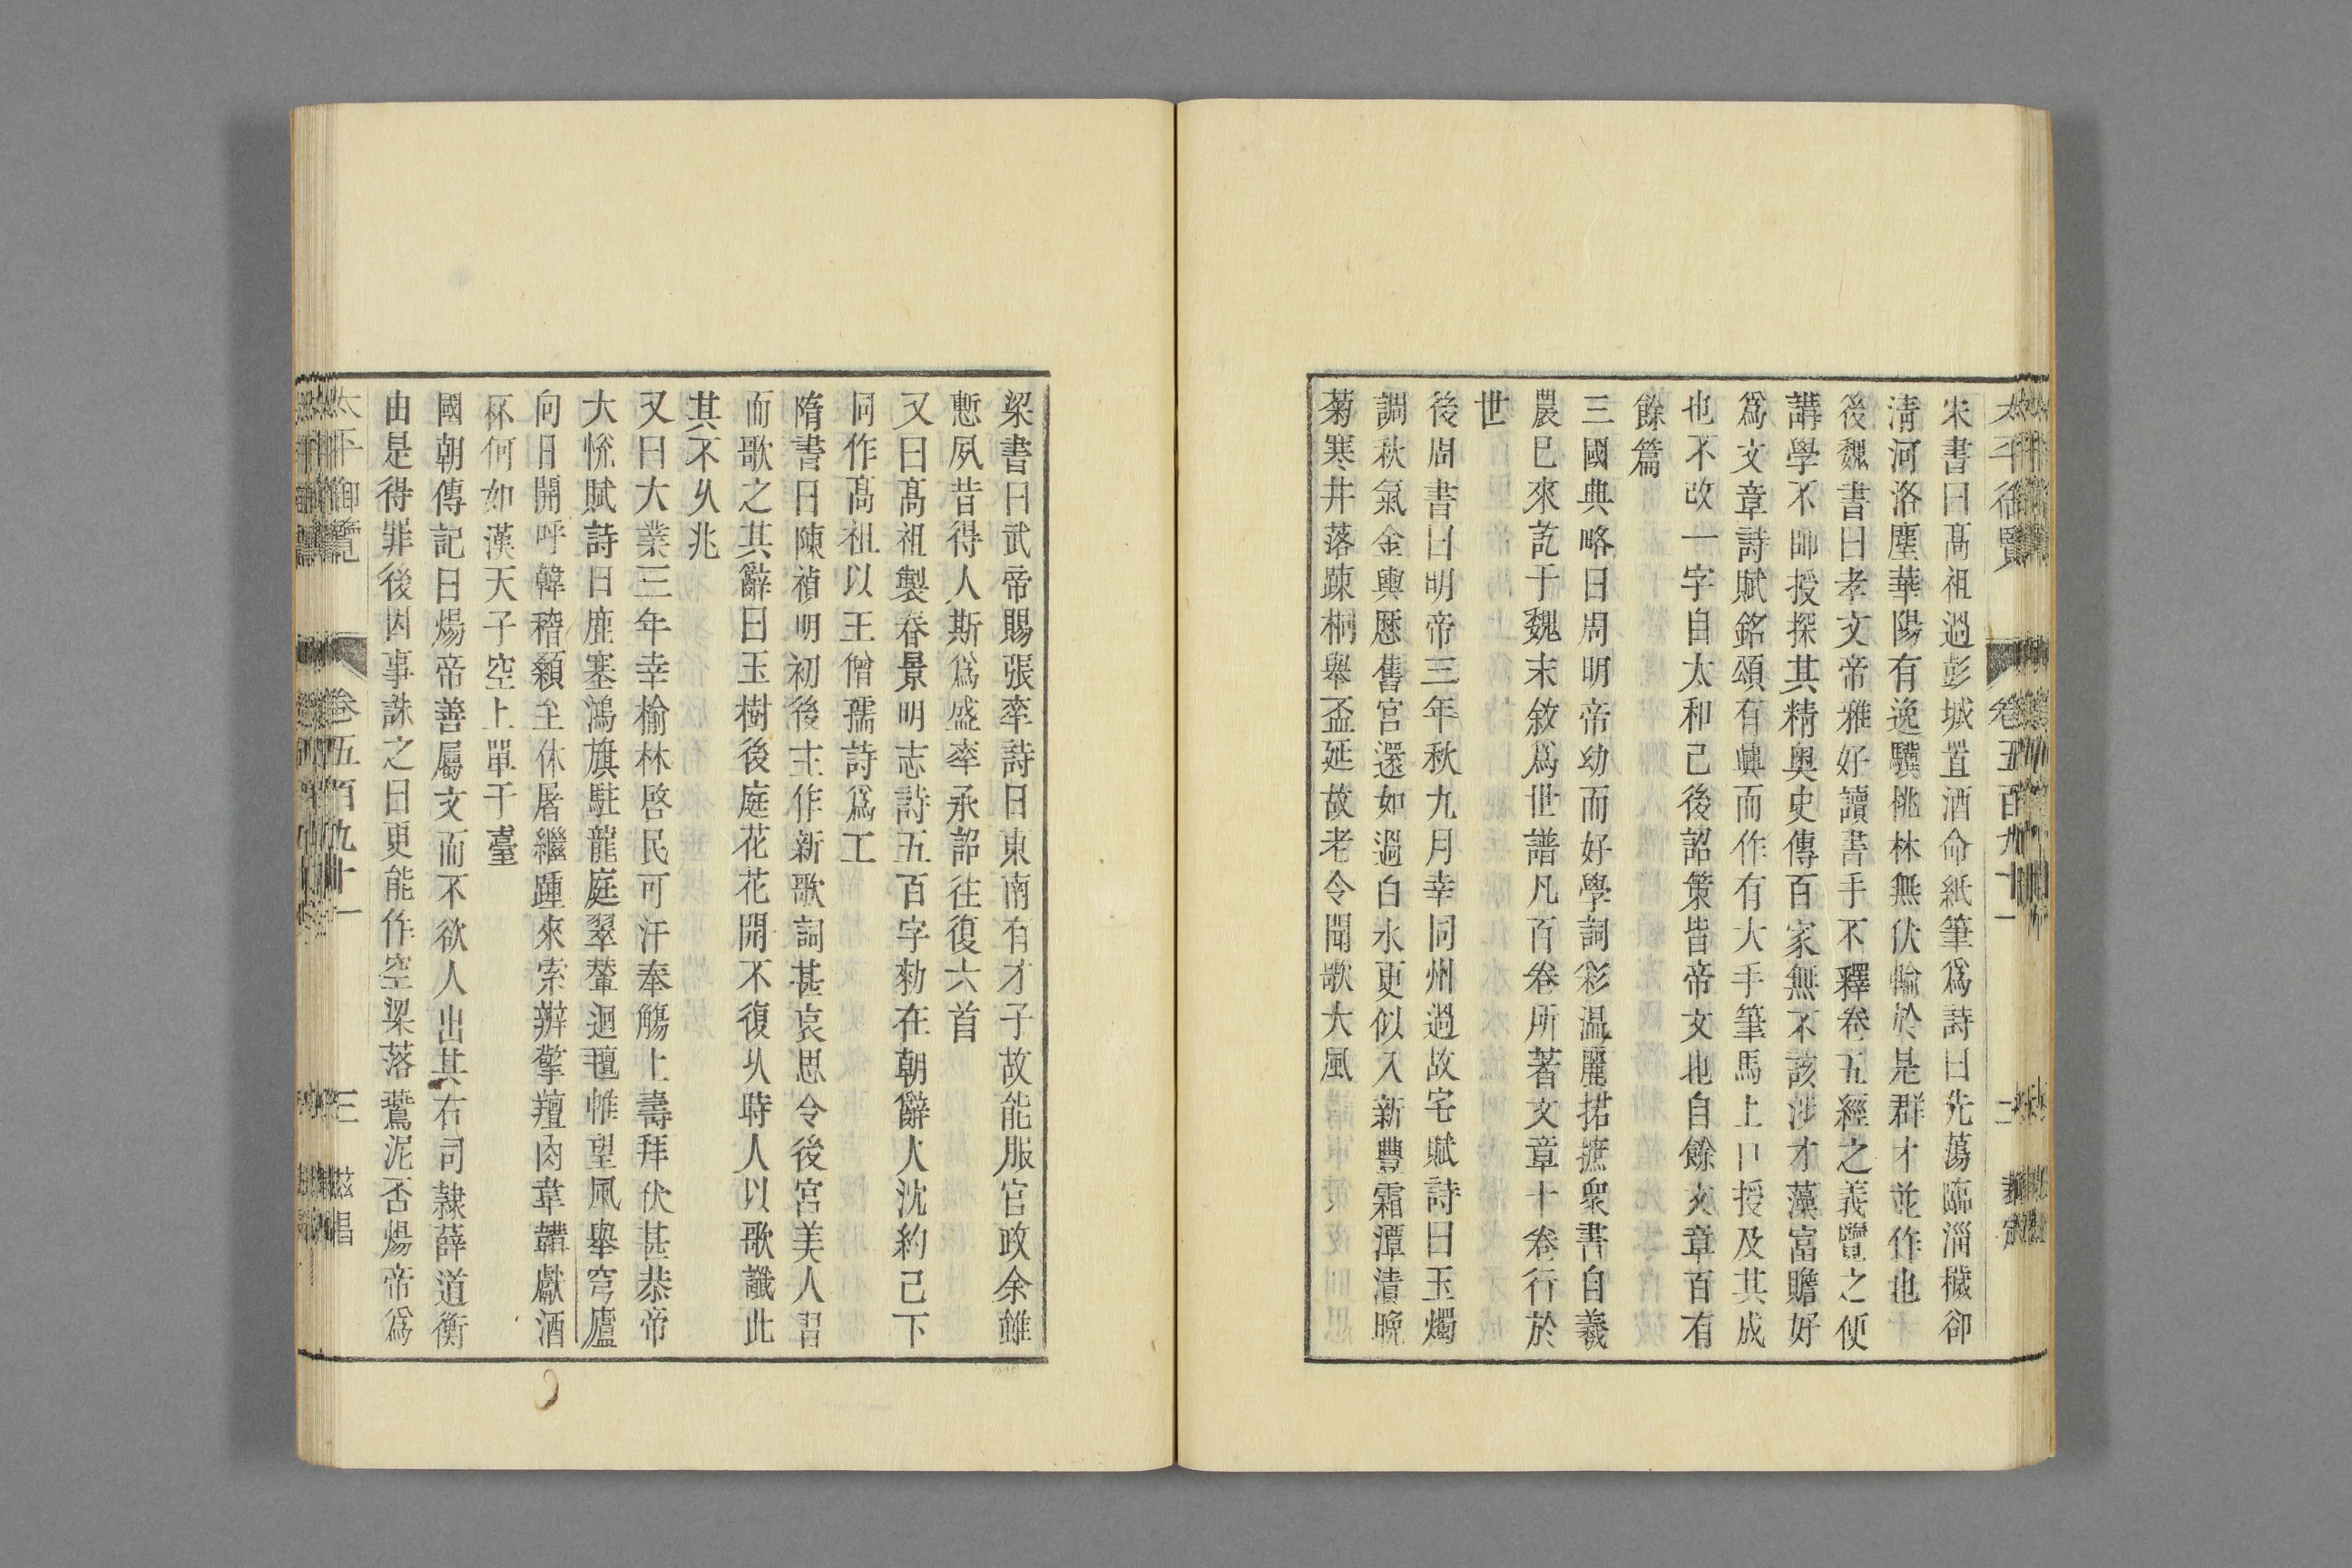 太平御覽 卷五百九十一 二
宋書曰髙祖過彭城置酒命紙筆爲詩曰先蕩臨淄穢卻
清河洛塵華陽有逸驥桃林無伏輪於是群才並作也
後魏書曰孝文帝雅好讀書手不釋卷五經之義覽之便
講學不師授探其精奥史傳百家無不該涉才藻富贍好
爲文章詩賦銘頌有興而作有大手筆馬上口授及其成
也不改一字自太和己後詔策皆帝文也自餘文章百有
餘篇
三國典略曰周明帝幼而好學詞彩温麗捃摭衆書自羲
農巳來訖于魏末敘爲世譜凡百卷所著文章十卷行於
世
後周書曰明帝三年秋九月幸同州過故宅賦詩曰玉燭
調秋氣金輿歷舊宮還如過白水更似入新豐霜潭漬晚
菊寒井落踈桐舉盃延故老令聞歌大風
梁書曰武帝賜張率詩曰東南有才子故能服官政余雖
慙夙昔得人斯爲盛率承詔往復六首
又曰髙祖製春景明志詩五百字勑在朝辭人沈約己下
同作髙祖以王僧孺詩爲工
隋書曰陳禎明初後主作新歌詞甚哀思令後宮美人習
而歌之其辭曰玉樹後庭花花開不復乆時人以歌讖此
其不乆兆
又曰大業三年幸榆林啓民可汗奉觴上壽拜伏甚恭帝
大悅賦詩曰鹿塞鴻旗駐龍庭翠輦迴氊帷望風舉穹廬
向日開呼韓稽顙至休屠繼踵來索辮擎羶肉韋韝獻酒
杯何如漢天子空上單于臺
國朝傳記曰煬帝善屬文而不欲人出其右司隷薛道衡
由是得罪後因事誅之曰更能作空梁落鷰泥否煬帝爲
太平御覽 卷五百九十一 三